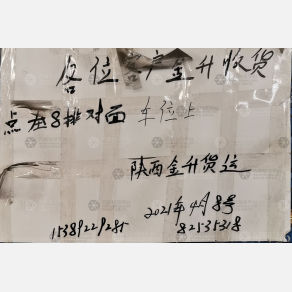 各位客户金升收货
点在8排对面车位上
陕西金升货运
2021年4月8号
15389229285 82535318